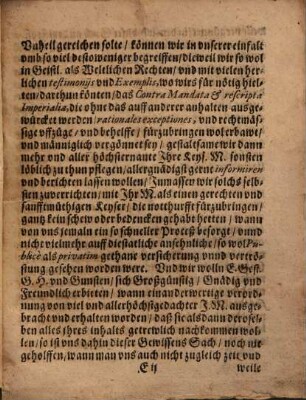 Vnheil gereichen solte / können wir in vnserer einfalt
vmb so viel destoweniger begreiffen / dieweil wir so wol
in Geistl. als Weltlichen Rechten / vnd mit vielen herr-
lichen testimonijs vnd Exemplis, wo wirs für nötig hiel-
ten / darthun könten / das Contra Mandata & rescripta
Imperialia, die ohne das auff anderer anhalten ausge-
würcket werden / rationales exceptiones, vnd rechtmäs-
sige vffzüge / vnd behelffe / fürzubringen wol erbawet /
vnd männiglich vergönnet sey / gestalt same wir dann
mehr vnd aller höchsternante Ihre Keys. M. sonsten
löblich zuthun pflegen / allergnädigst gerne informiren
vnd berichten lassen wollen / Inmassen wir solchs selbs-
sten zuverrichten / mit Ihr M. als einen gerechten vnd
sanfftmüthigen Keyser / dißer nothurfft fürzubringen /
gantz kein schew oder bedencken gehabt hetten / wann
von vns jemaln ein so schneller Proceß besorgt / vnnd
nicht vielmehr auff die stattliche ansehnliche / so wol Pu-
blicè als privatim gethane versicherung vnnd vertrö-
stung gesehen worden were. Vnd wir wolln E. Gest.
G. H. vnd Gunsten / sich Großgünstig / Gnädig vnd
Freundlich erbieten / wann einander werige verord-
nung von viel vnd allerhöchstgedachter J. M. ausge-
bracht vnd erhalten worden / daß sie als dann derosel-
ben alles ihres inhalts getrewlich nachkommen wol-
len / so ist vns dahin dieser Gewissens Sach / noch nie
geholffen / wann man vns auch nicht zugleich zeit vnd
E ij weile